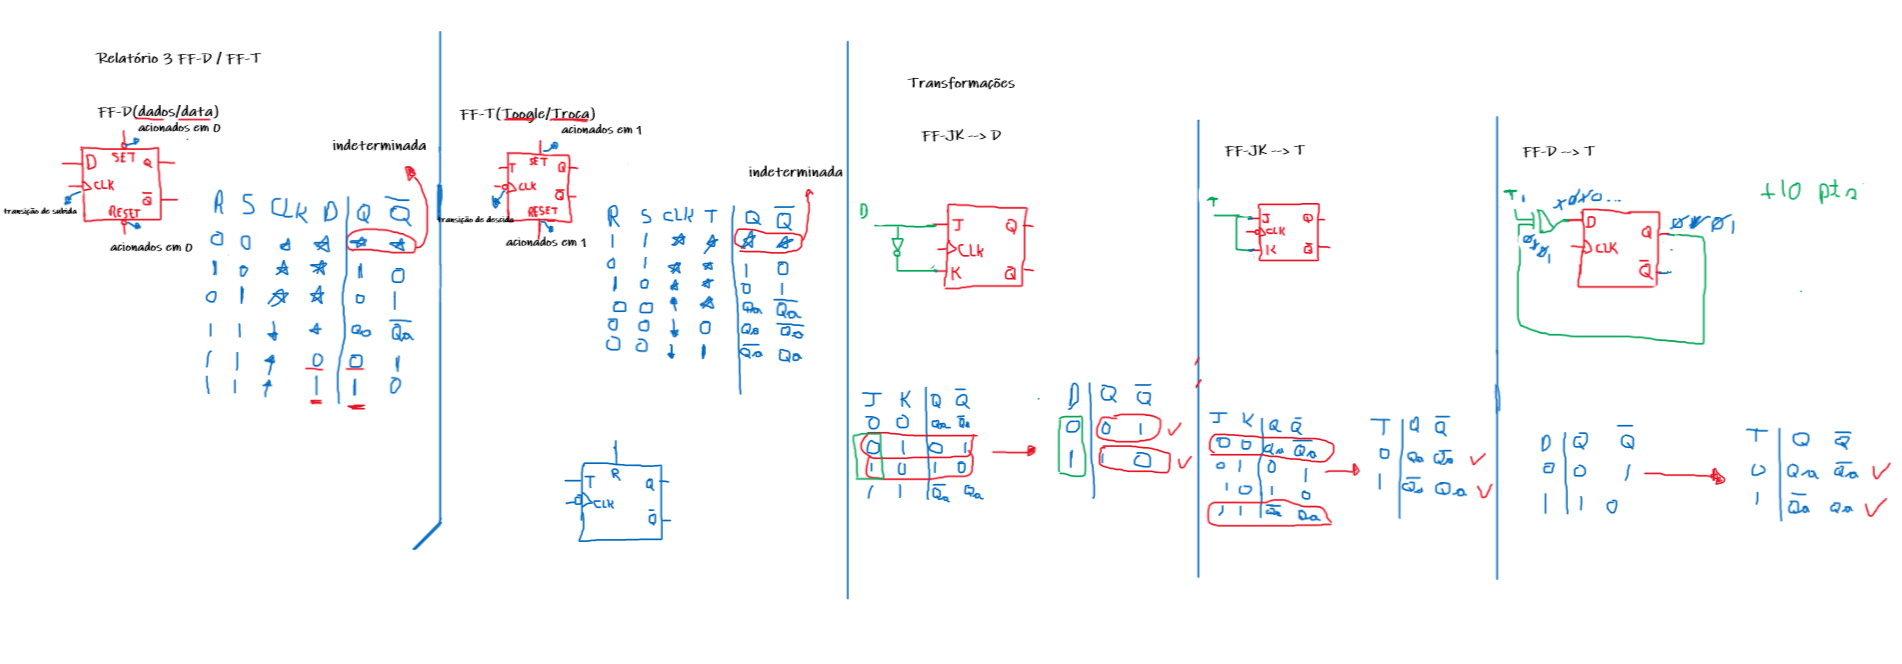 Relatório 3 FF-D / FF-T
FF-D(dados/data)
acionados em 0
D SET Q
CLK
Q̅
RESET
transição de subida
acionados em 0
indeterminada
R S CLK D Q Q̅
0 0 ☆ ☆ ☆ ☆
1 0 ☆ ☆ 1 0
0 1 ☆ ☆ 0 1
1 1 ↓ ☆ Qa Q̅a
1 1 ↑ 0 0 1
1 1 ↑ 1 1 0
FF-T(Toogle/Troca)
acionados em 1
T SET Q
CLK
Q̅
RESET
transição de descida
acionados em 1
indeterminada
R S CLK T Q Q̅
1 1 ☆ ☆ ☆ ☆
0 1 ☆ ☆ 1 0
1 0 ☆ ☆ 0 1
0 0 ↑ ☆ Qa Q̅a
0 0 ↓ 0 Qa Q̅a
0 0 ↓ 1 Q̅a Qa
T R Q
CLK
Q̅
Transformações
FF-JK --> D
D
J Q
CLK
K Q̅
J K Q Q̅
0 0 Qa Q̅a
0 1 0 1
1 0 1 0
1 1 Q̅a Qa
D Q Q̅
0 0 1 ✓
1 1 0 ✓
FF-JK --> T
T
J Q
CLK
K Q̅
J K Q Q̅
0 0 Qa Q̅a
0 1 0 1
1 0 1 0
1 1 Q̅a Qa
T Q Q̅
0 Qa Q̅a ✓
1 Q̅a Qa ✓
FF-D --> T
T 1
D Q
CLK
Q̅
+10 pts
D Q Q̅
0 0 1
1 1 0
T Q Q̅
0 Qa Q̅a ✓
1 Q̅a Qa ✓